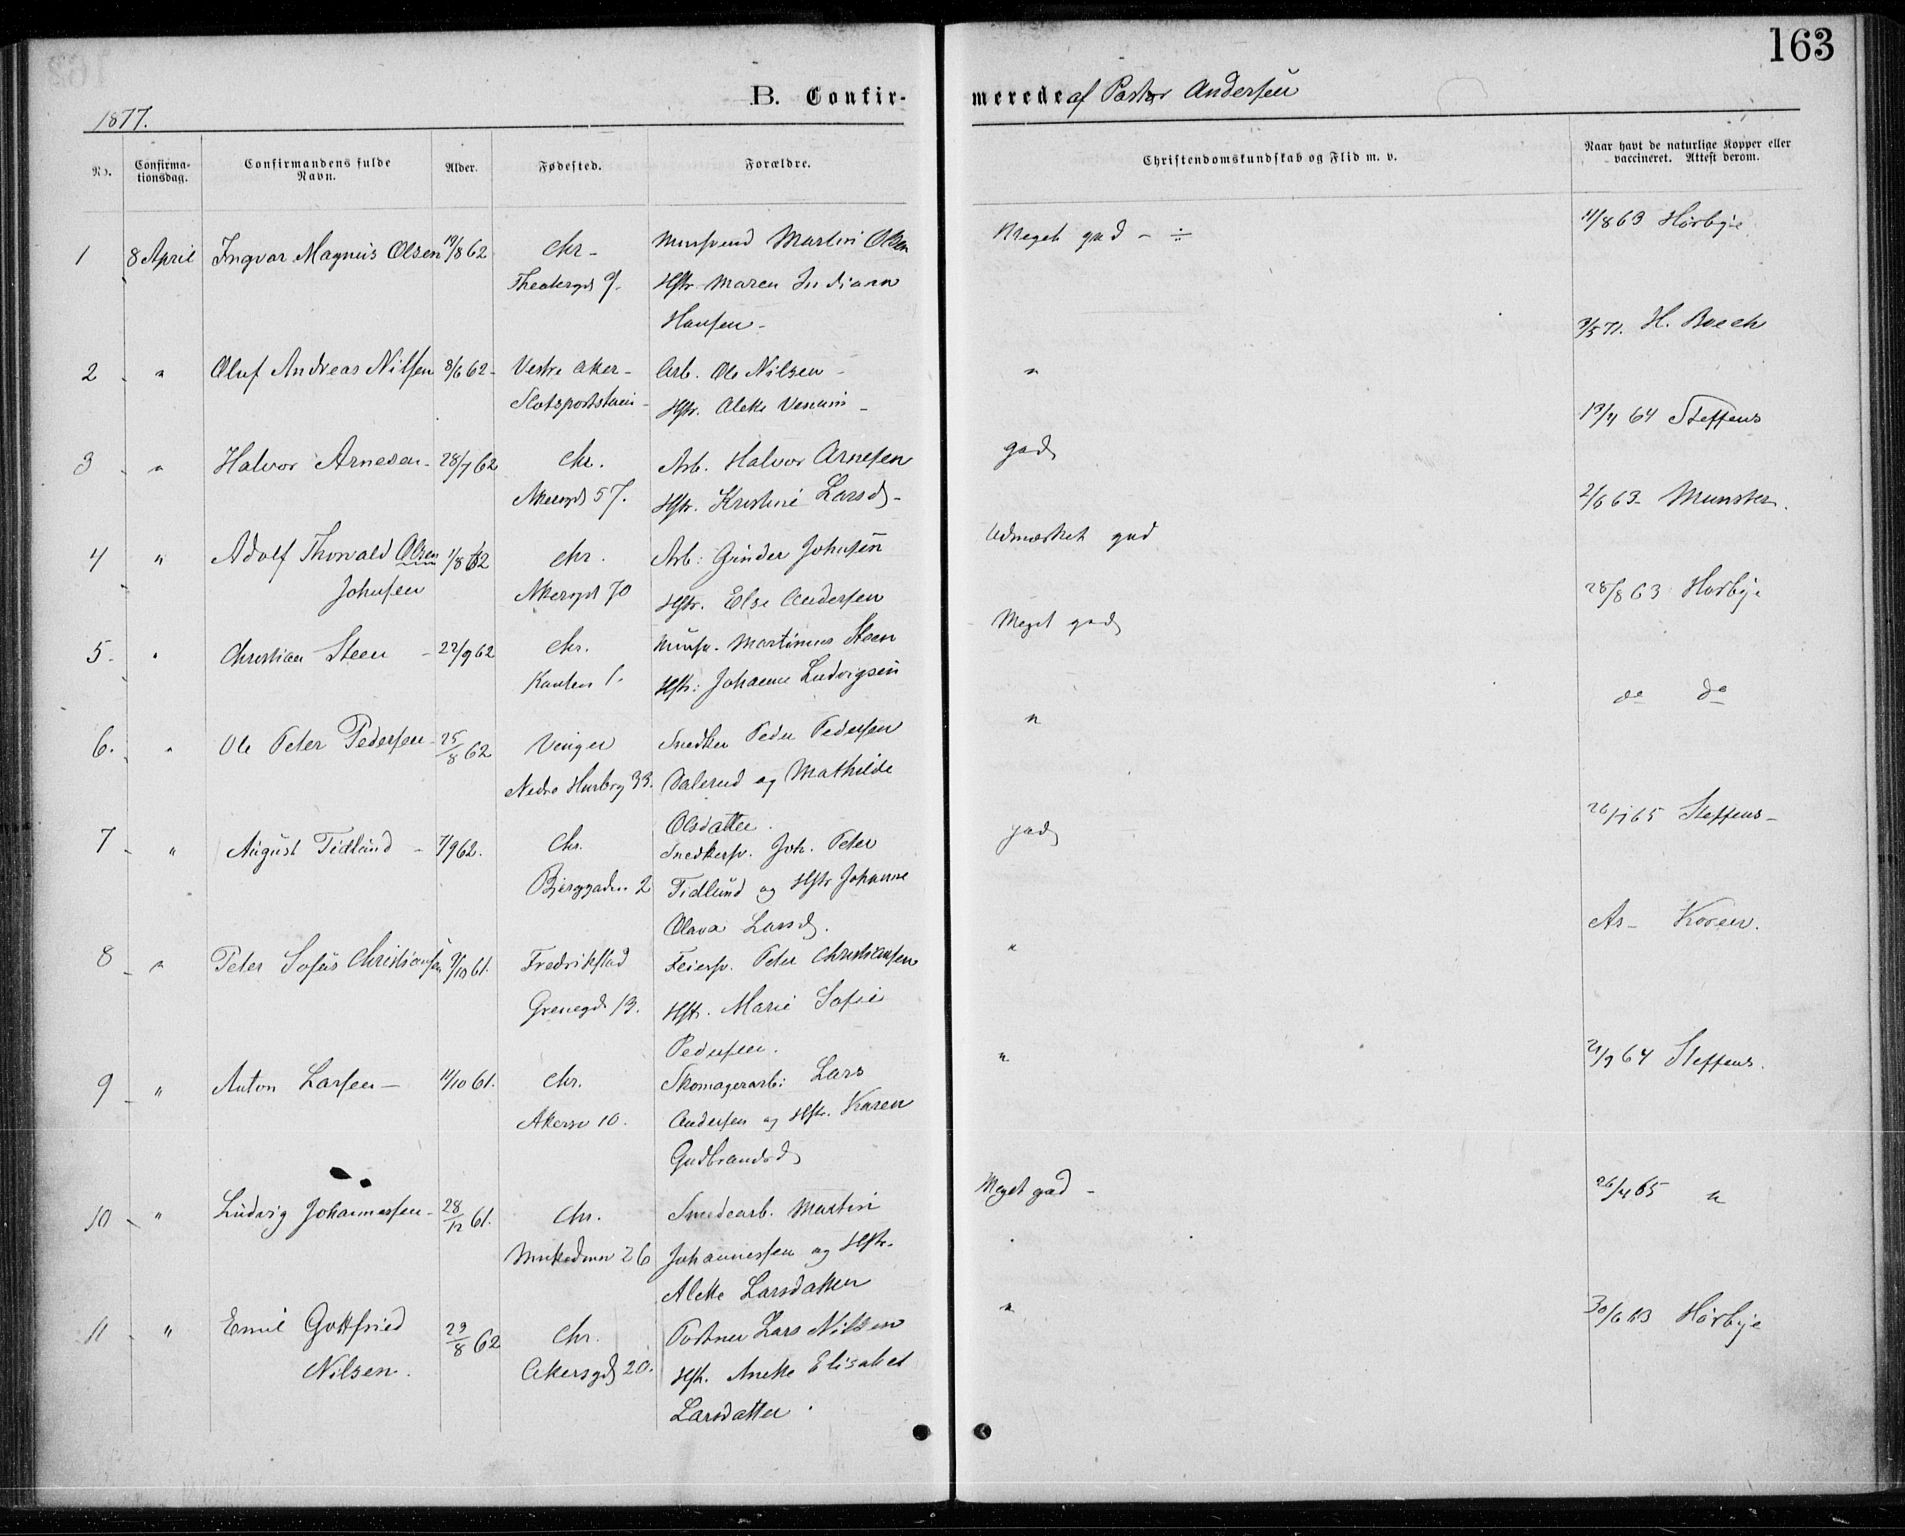 163
1877.
B. Confir-
merede af Pastor Andersen
No.
Confirma-
tionsdag.
Confirmandens fulde
Navn.
Alder.
Fødested.
Forældre.
Christendomskundskab og Flid m. v.
Naar havt de naturlige Kopper eller
vaccineret. Attest derom.
1 8 April Ingvar Magnus Olsen 19/8 62 Chr. Martin Olsen Meget god - ÷ 11/8 63 Hørbye
Theatergd 9. Hstr. Maren Indiana
Hansen -
2 " Oluf Andreas Nilsen 8/6 62 - Vestre Aker - Arb. Ole Nilsen - " 3/5 71. H. Boeck
Hstr. Alette
3 " Halvor Arnesen - 28/7 62 Chr. Arb. Halvor Arnesen god 13/4 64 Steffens
Akersgd 57. Hstr. Kristine Larsd -
4 " Adolf Thorvald Olsen 1/8 62 Chr. Arb: Gunder Johnsen Udmærket god 2/6 63 - Munster.
Johnsen Akersgd 70 Hstr. Else Andersen
5. " Christian Steen - 22/9 62 Chr. Mursv. Martinus Steen Meget god 28/8 63 Hørbye
1. Hstr: Johanne Ludvigsen
6. " Ole Peter Pedersen - 25/8 62 Vinger Snedker Peder Pedersen " do do
Nedre 33. Valerud og Mathilde
Olsdatter.
7 " August Tidlund - 7/9 62. Chr. Snedkersv. Joh. Peter god 26/7 65 Steffens -
Bjerggaden 2 Tidlund og Hstr Johanne
Olava Larsd.
8 " Peter Sofus Christiansen 9/10 61. Fredrikstad Feiersv. Peter Christiansen " Ar - Koren.
Grenegd 13. Hstr. Marie Sofie
Pedersen.
9 " Anton Larsen - 11/10 61. Chr. Skomagerarb: Lars " 21/9 64 Steffens.
Akersv 10. Andersen og Hstr. Karen
Gudbrandsd
10 " Ludvig Johannessen - 28/12 61. Chr. Smedearb. Martin Meget god - 26/4 65 "
26 Johannessen og Hstr.
Alette Larsdatter
11 " Emil Gottfried 29/8 62 Chr. Portner Lars Nilsen " 30/6 63 Hørbye
Nilsen. Akersgd 20. Hstr. Anette Elisabet
Larsdatter.